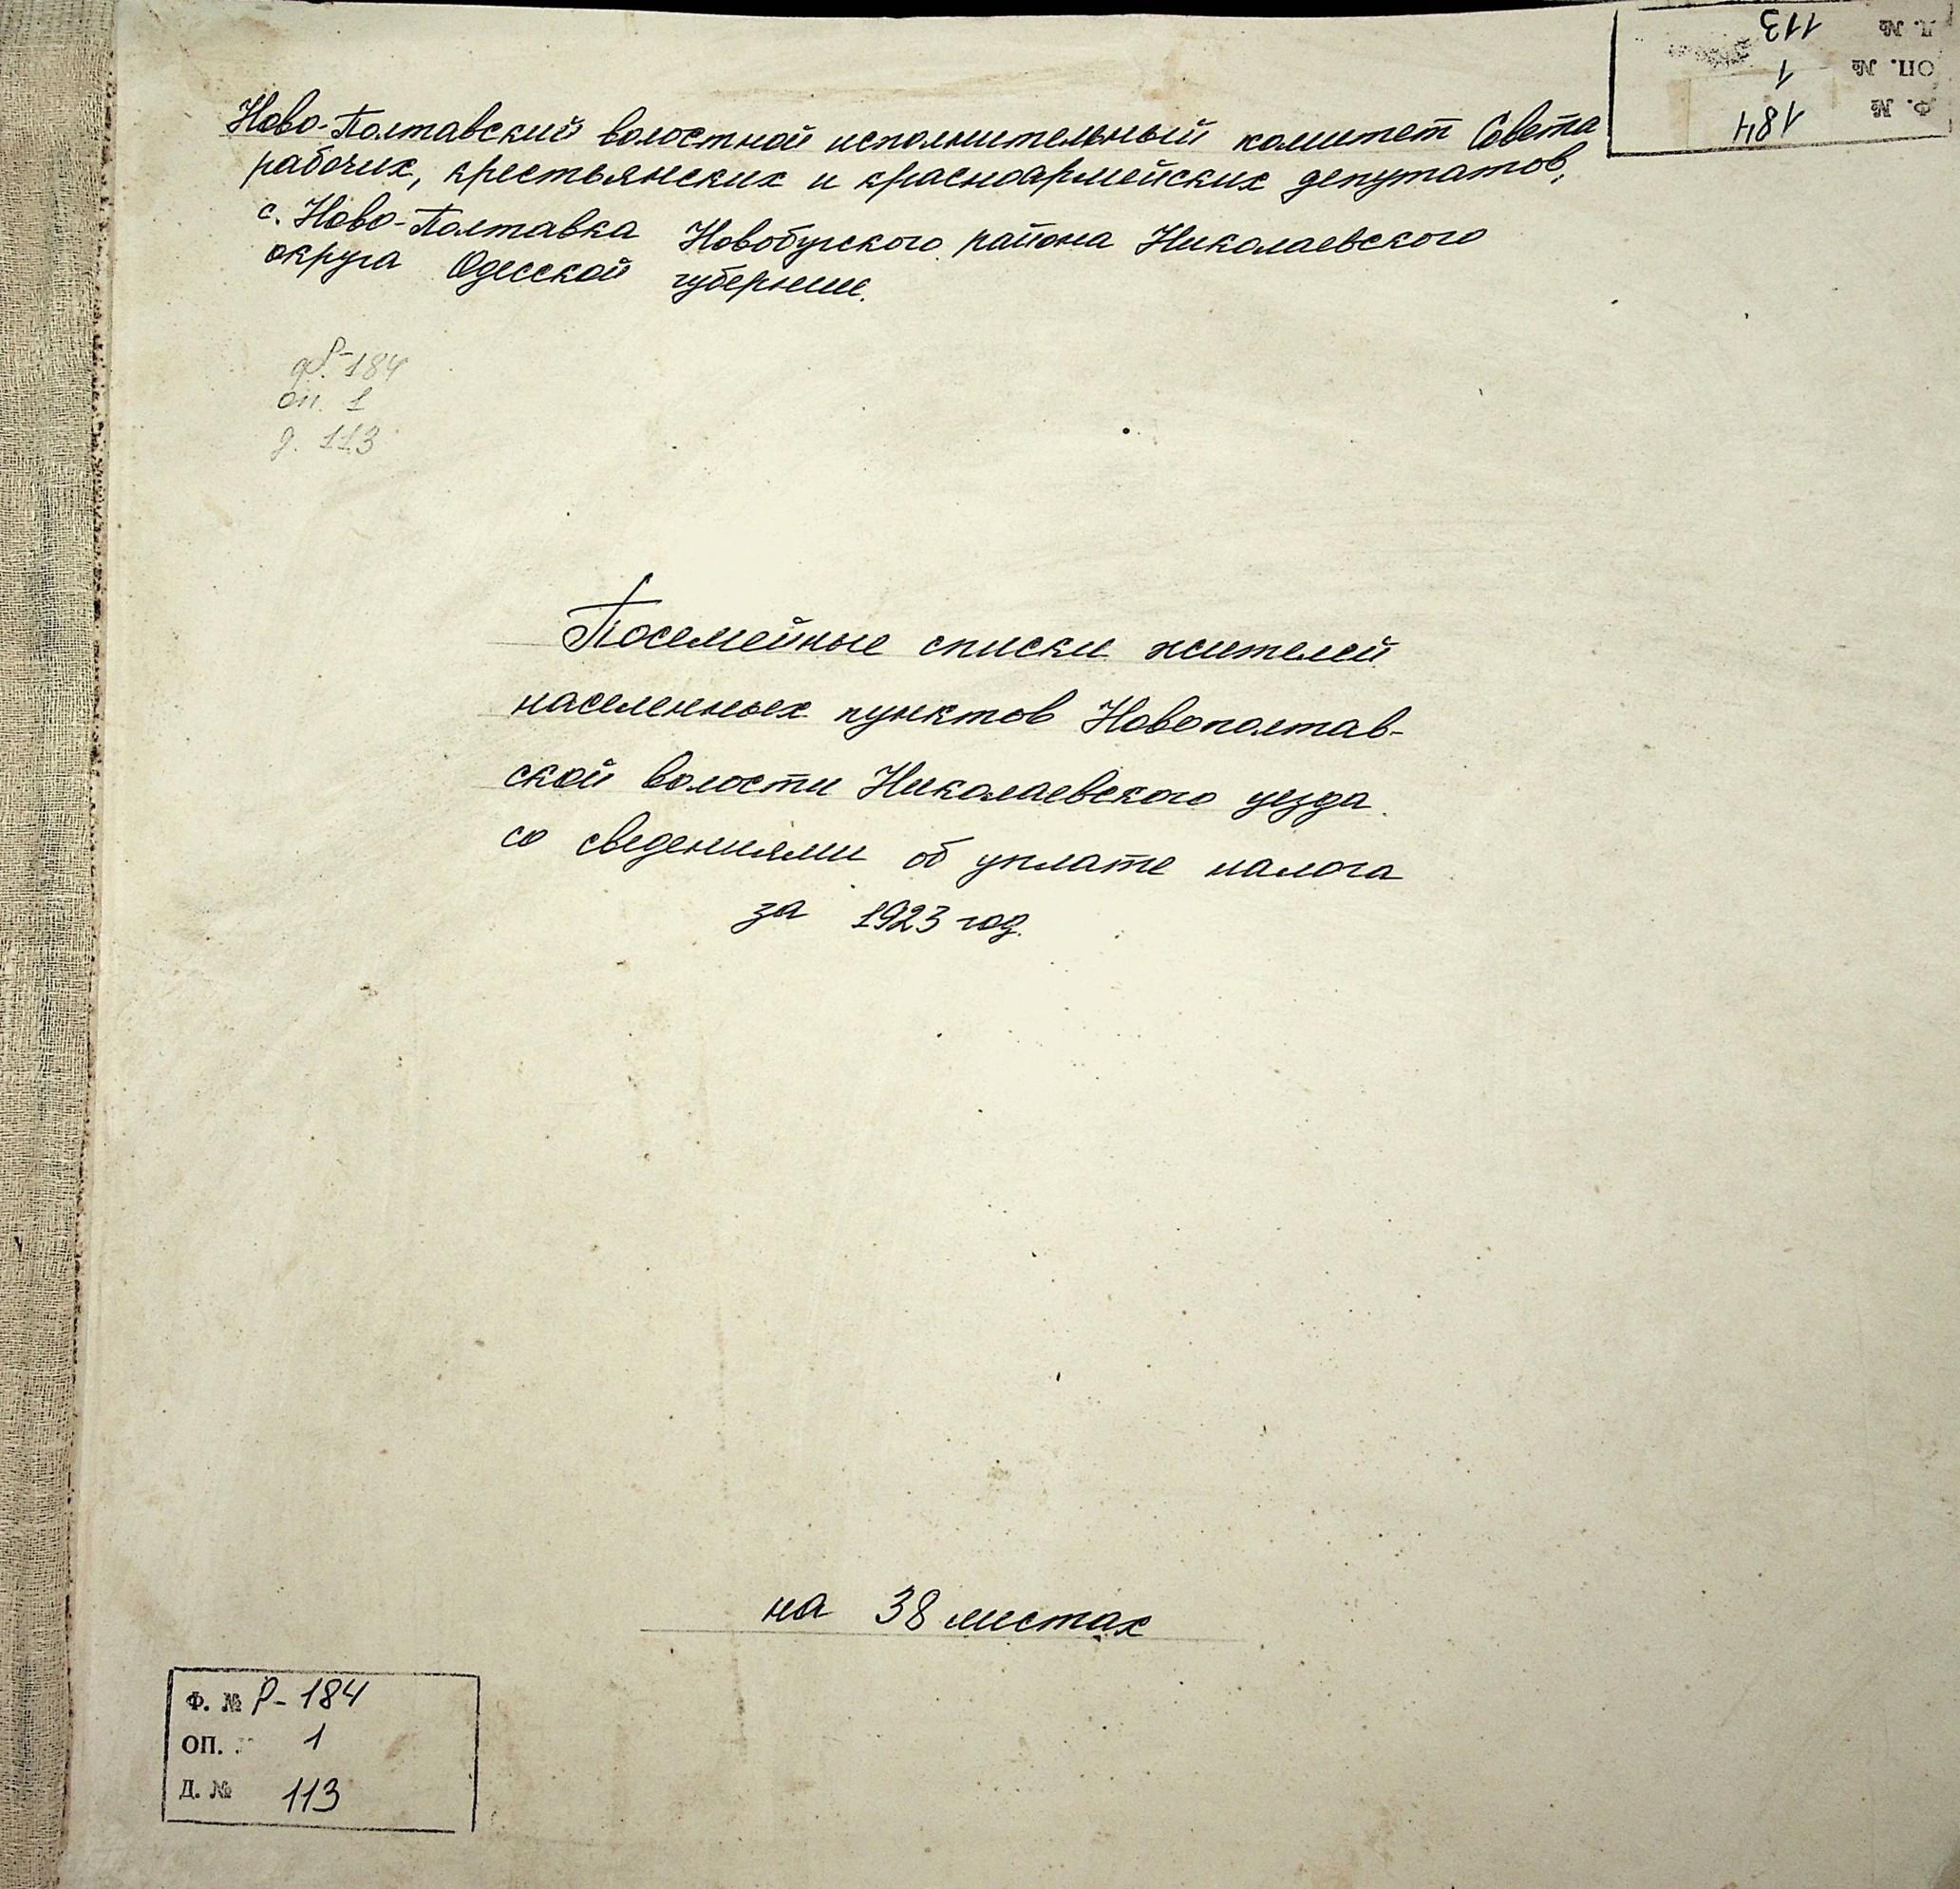 Ново-Полтавский волостной исполнительный комитет Совета
рабочих, крестьянских и красноармейских депутатов,
с. Ново-Полтавка Новобугского района Николаевского
округа Одесской губернии.
Ф. № 184
ОП. № 1
Д. № 113
ф. Р-184
оп. 1
д. 113
Посемейные списки жителей
населенных пунктов Новополтав-
ской волости Николаевского уезда
со сведениями об уплате налога
за 1923 год.
на 38 листах
Ф. № Р-184
ОП. 1
Д. № 113